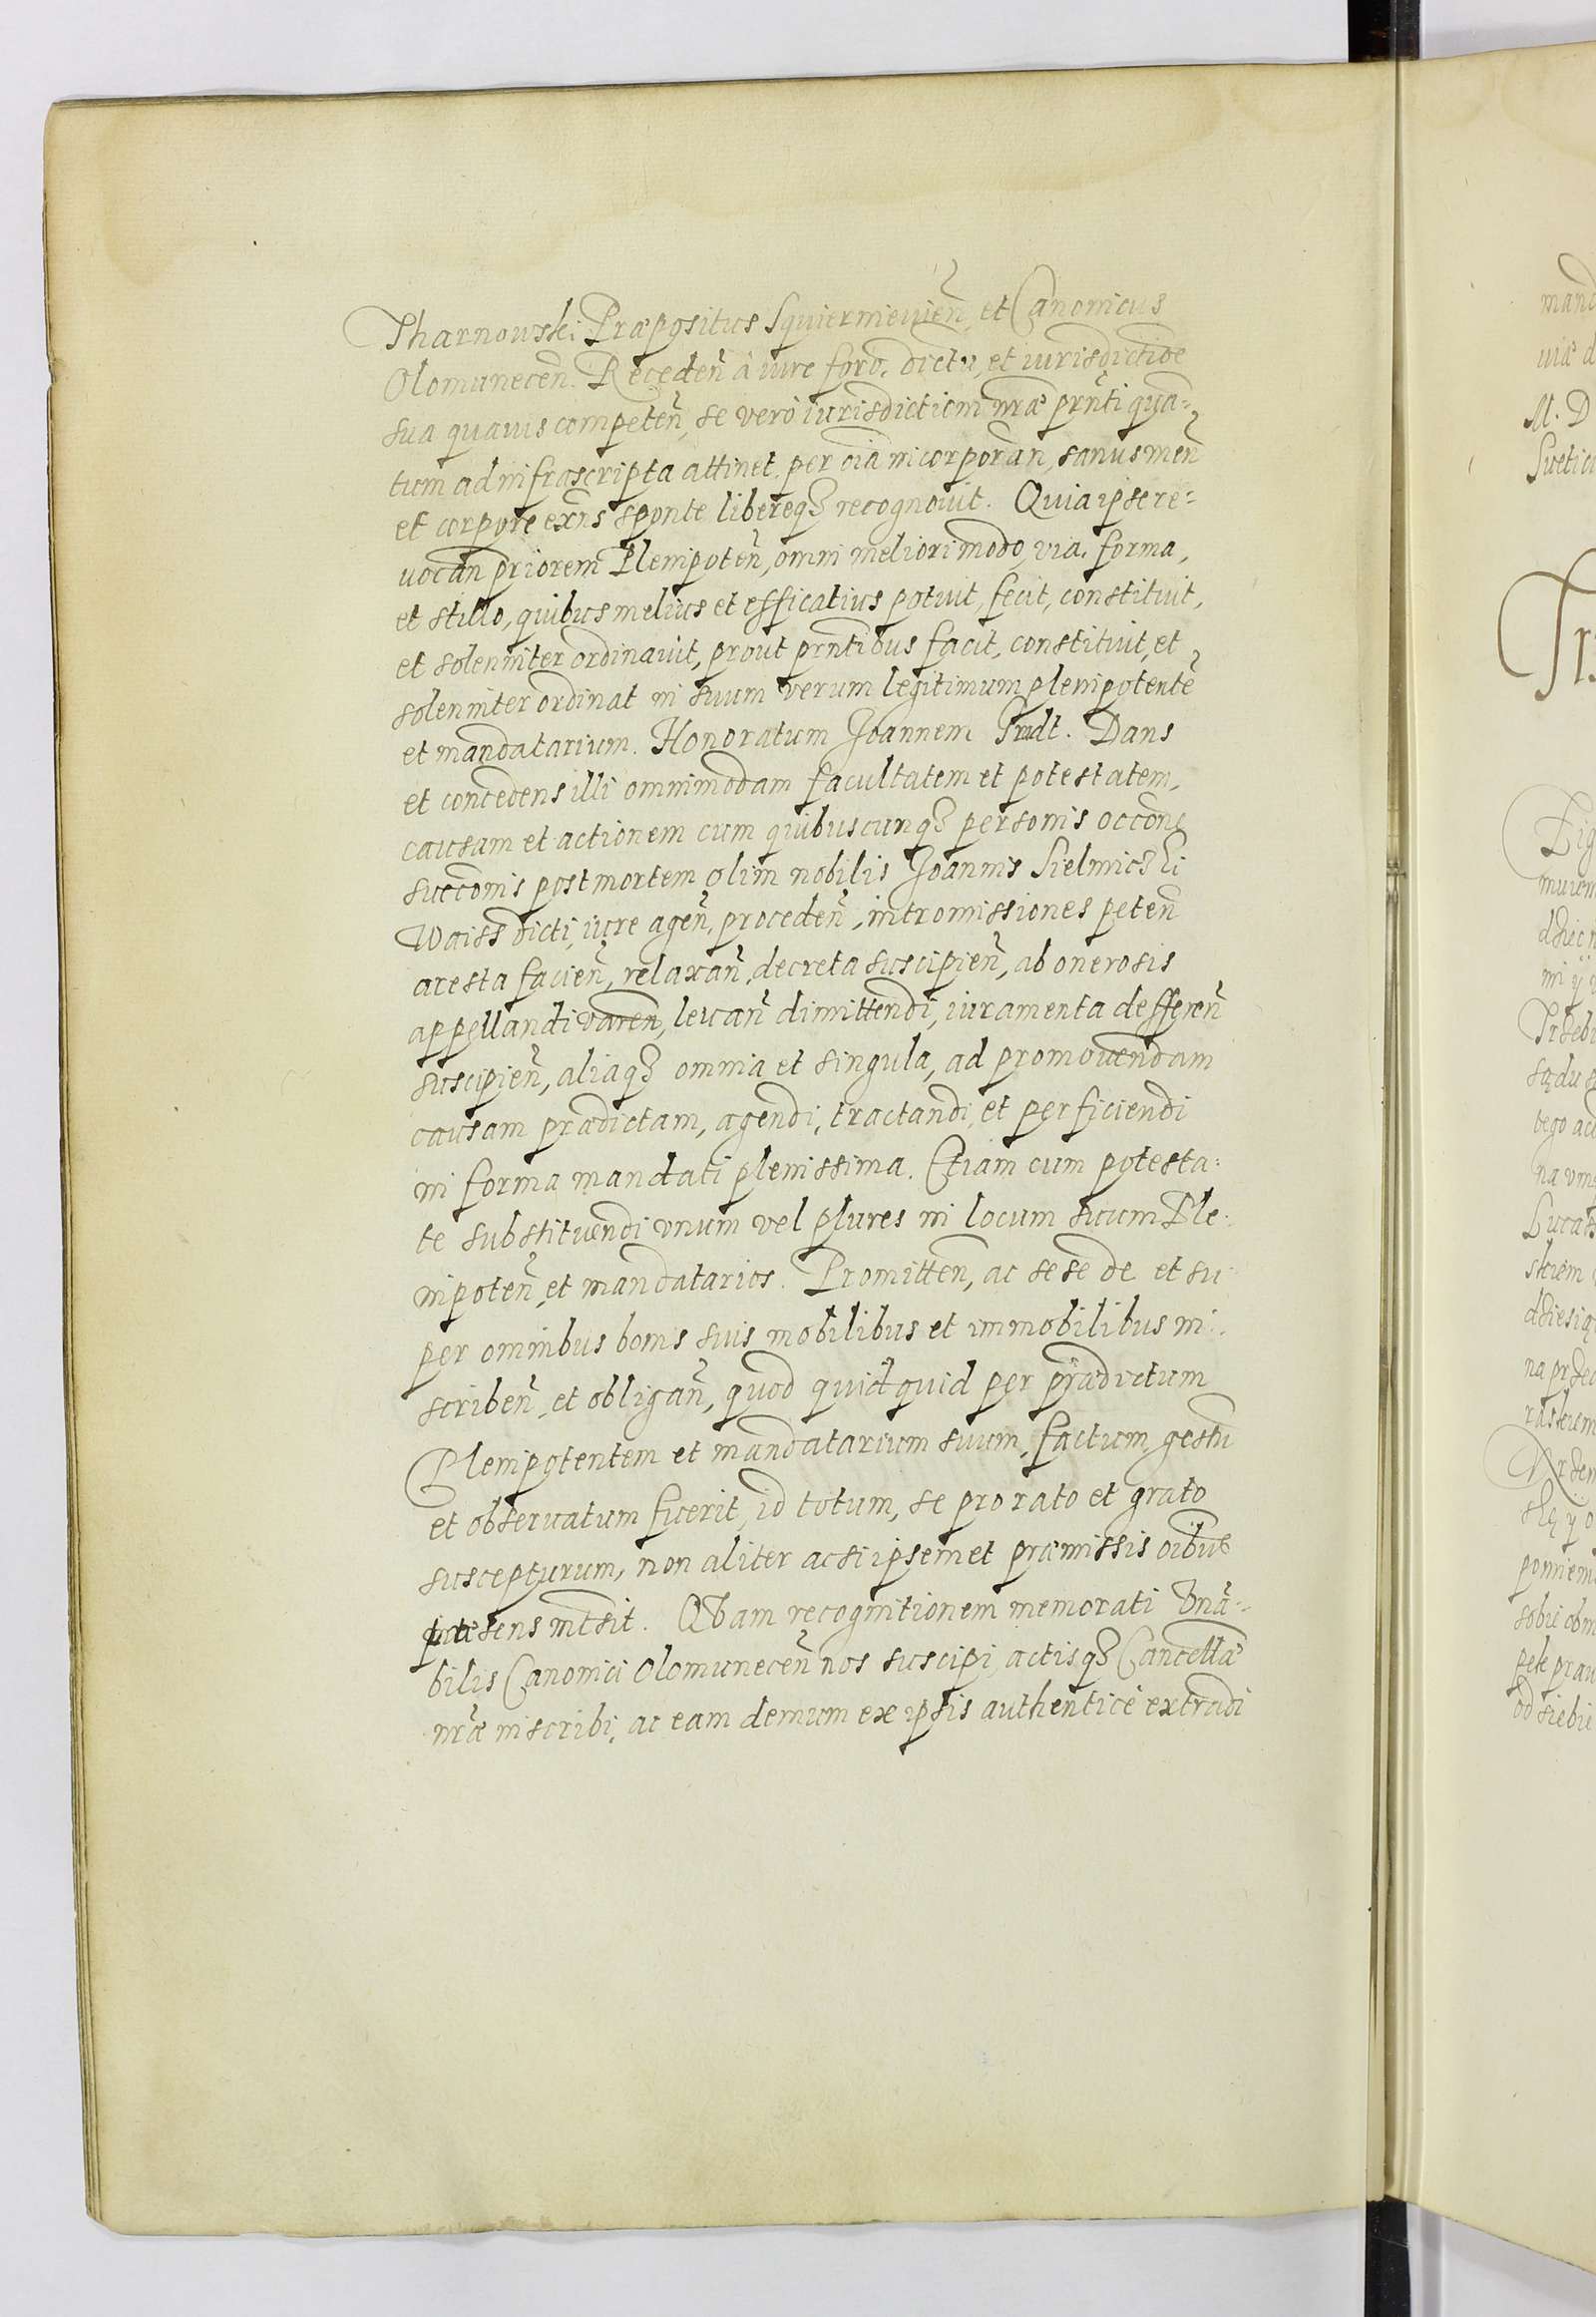 Tharnowski Præpositus Squiernieuien̄, et Canonicus
Olomunecen̄. Receden̄ à iure foro, dictu, et iurisdictiōe
sua quauis competen̄, se verò iurisdictioni nr̄æ prn̄ti qūa-
tum ad infrascripta attinet, per oīa incorporan̄, sanus men̄
et corpore exn̄s sponte libereqʒ recognouit. Quia ipse re-
uocan̄ priorem Plenipoten̄, omni meliori modo, via, forma,
et stillo, quibus melius et efficatius potuit, fecit, constituit,
et solenniter ordinauit, prout prn̄tibus facit, constituit, et
solenniter ordinat in suum verum legitimum plenipotentē
et mandatarium. Honoratum Joannem Dans
et concedens illi omnimodam facultatem et potestatem,
causam et actionem cum quibuscunqʒ personis occōne
succōnis post mortem olim nobilis Joannis Sielnicʒki
Waiss dicti, iure agen̄, proceden̄, intromissiones peten̄
aresta facien̄, relaxan̄, decreta suscipien̄, ab onerosis
appellandi, leuan̄ dimittendi, iuramenta defferen̄
suscipien̄, aliaqʒ omnia et singula, ad promouendam
causam prædictam, agendi, tractandi, et perficiendi
in forma mandati plenissima. Etiam cum potesta-
te substituendi vnum vel plures in locum suum Ple-
nipoten̄, et mandatarios. Promitten̄, ac sese de et su-
per omnibus bonis suis mobilibus et immobilibus in-
scriben̄, et obligan̄, quod quidquid per prædictum
Plenipotentem et mandatarium suum, factum, gestū
et obseruatum fuerit, id totum, se pro rato et grato
suscepturum, non aliter ac si ipsemet præmissis oībus
præsens intsit. Qūam recognitionem memorati Vn̄a-
bilis Canonici Olomunecen̄ nos suscipi, actisqʒ Cancellæ
nr̄æ inscribi, ac eam demum ex ipsis authenticè extradi